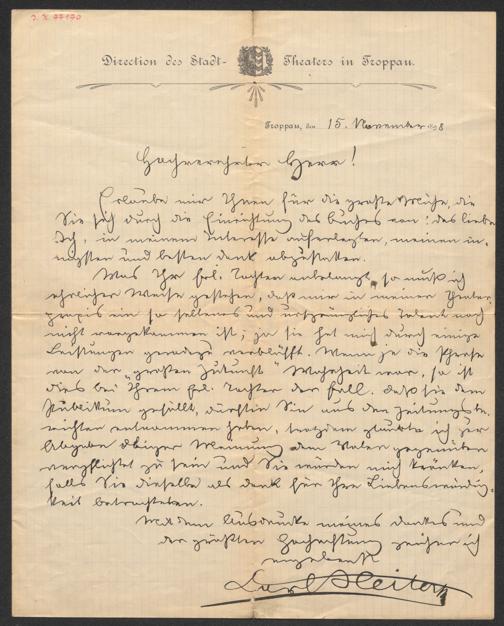 J. N. 77170
Direction des Stadt-Theaters in Troppau.
Troppau, den 15. November 1898
Hochverehrter Herr!
Erlaube mir Ihnen für die große Mühe, die
Sie sich durch die Einrichtung des Buches von: des liebe
Ich, in meinem Interesse auferlegten, meinen in-
nigsten und besten Dank abzustatten.
Was Ihr frl. Tochter anbelangt, so muß ich
ehrlicher Weise gestehen, daß mir in meiner Theater
praxis ein so seltenes und urwüchsiges Talent noch
nicht vorgekommen ist; ja sie hat mich durch einige
Leistungen geradezu verblüfft. Wenn je die Phrase
von der „großen Zukunft" Wahrheit war, so ist
dies bei Ihrem frl. Tochter der Fall. Daß sie dem
Publikum gefällt, dürften Sie aus den Zeitungsbe-
richten entnommen haben, trotzdem glaubte ich zur
Abgabe obiger Meinung dem Vater gegenüber
verpflichtet zu sein und Sie würden mich kränken,
falls Sie dieselbe als Dank für Ihre Liebenswürdig-
keit betrachteten.
Mit dem Ausdrucke meines Dankes und
der größten Hochachtung zeichne ich
ergebenst
Carl